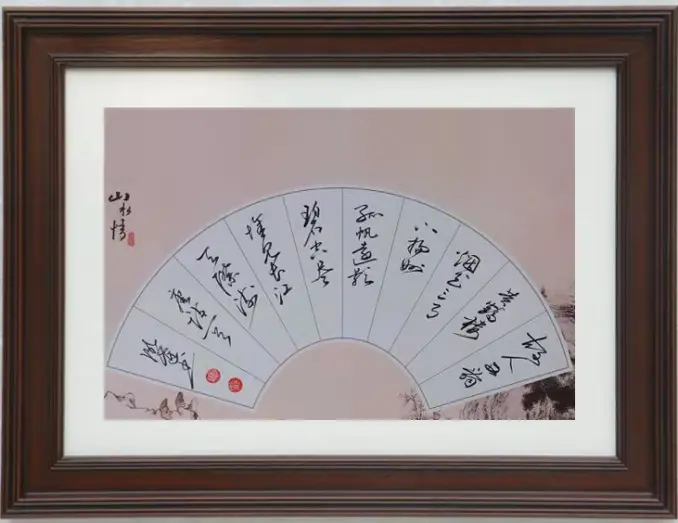 故人西辞
黄鹤楼
烟花三月
下扬州
孤帆远影
碧空尽
唯见长江
天际流
山水情